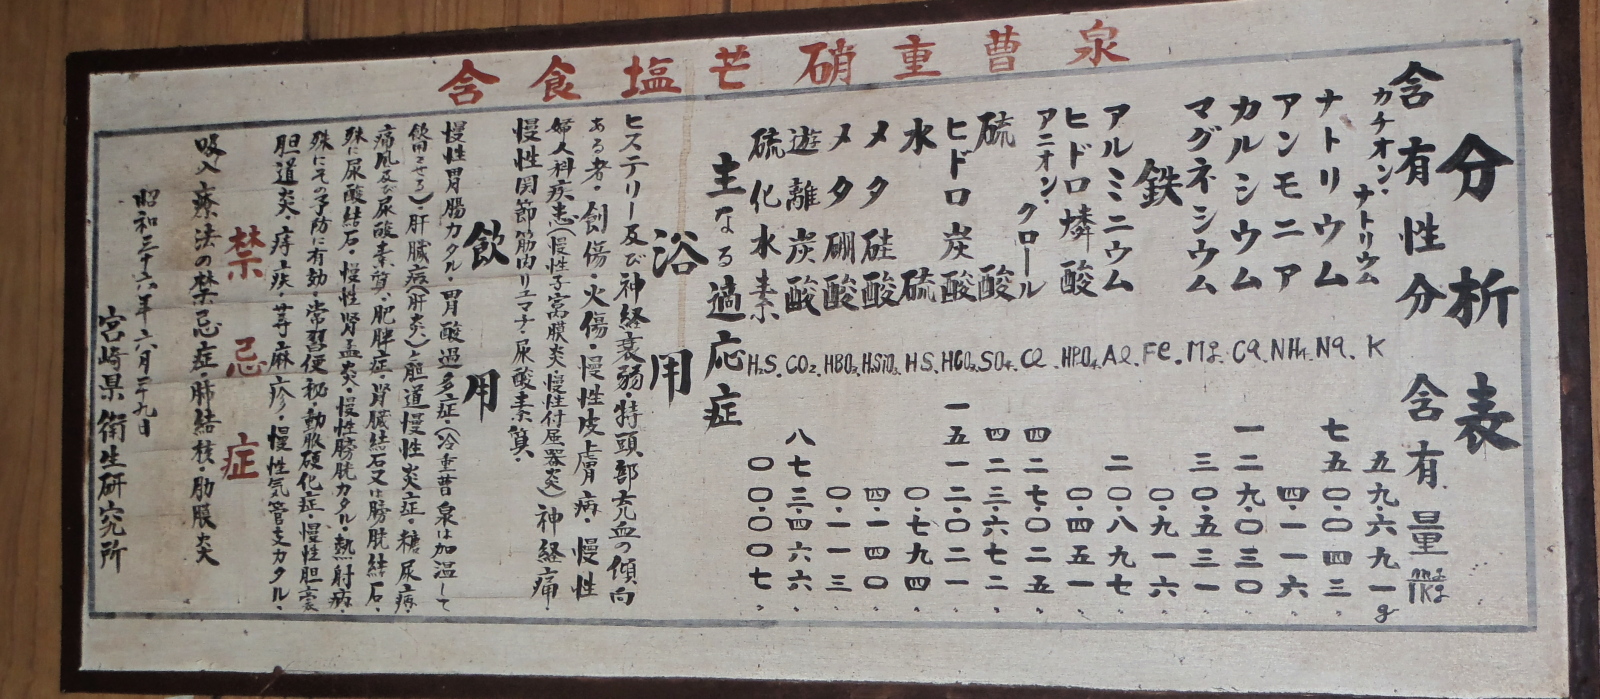 含食塩芒硝重曹泉
分析表
含有性分 含有量 mg/1Kg
カチオン・ナトリウム K 五九・六九一g
ナトリウム Na. 七五〇・〇四三〃
アンモニア NH4. 四・一一六〃
カルシウム Ca. 一二九・〇三〇〃
マグネシウム Mg. 三〇・五三一〃
鉄 Fe. 〇・九一六
アルミニウム Al. 二〇・八九七〃
ヒドロ燐酸 HPO4. 〇・四五一〃
アニオン・クロール Cl. 四二七・〇二五〃
硫酸 SO4. 四二三・六七二〃
ヒドロ炭酸 HCO3. 一五一二・〇二一〃
水硫 HS. 〇・七九四〃
メタ硅酸 H2SiO3. 四・一四〇〃
メタ硼酸 HBO2. 〇・一一三〃
遊離炭酸 CO2. 八七三・四六六〃
硫化水素 H2S. 〇〇・〇〇七〃
主なる適応症
浴用
ヒステリー及び神経衰弱・特頭部充血の傾向
ある者・創傷・火傷・慢性皮膚病・慢性
婦人科疾患(慢性子宮膜炎・慢性付属器炎)神経痛
慢性関節筋肉リュマチ・尿酸素質・
飲用
慢性胃腸カタル・胃酸過多症・(冷重曹泉は加温して
飲用させる)肝臓病(肝炎)胆道慢性炎症・糖尿病・
痛風及び尿酸素質・肥胖症・腎臓結石又は膀胱結石・
殊に尿酸結石・慢性腎盂炎・慢性膀胱カタル・熱射病・
殊にその予防に有効・常習便秘・動脈硬化症・慢性胆嚢
胆道炎・痔疾・蕁麻疹・慢性気管支カタル・
禁忌症
吸入療法の禁忌症・肺結核・肋膜炎
昭和三十六年六月二十九日
宮崎県衛生研究所